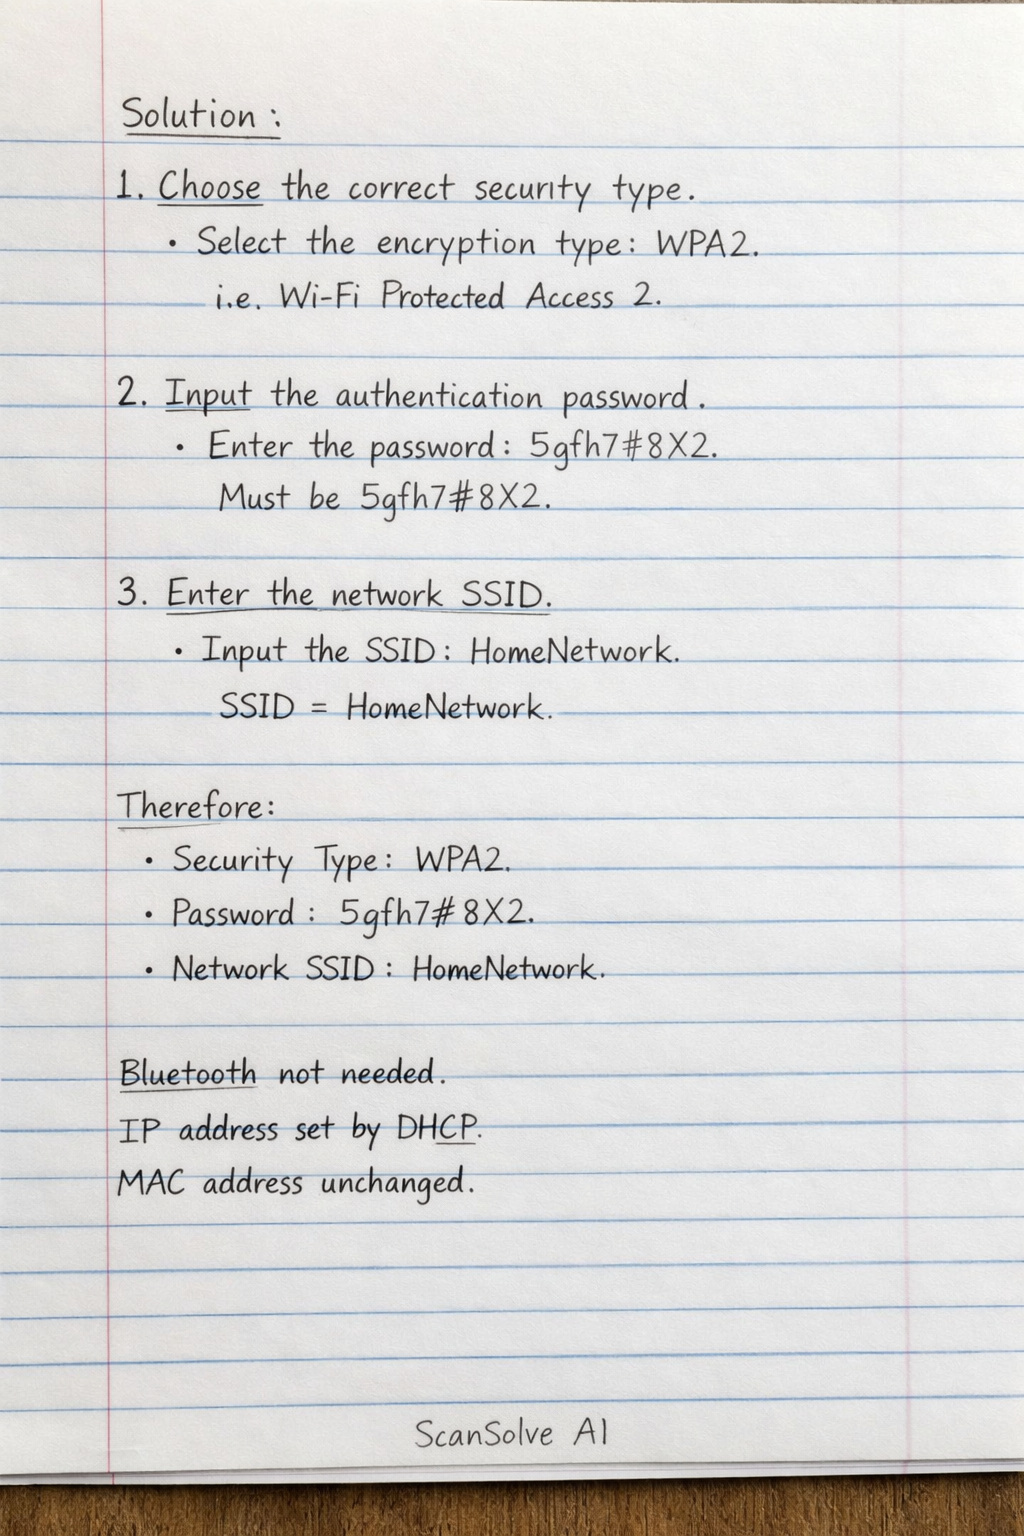 Solution :
1. Choose the correct security type.
• Select the encryption type: WPA2.
i.e. Wi-Fi Protected Access 2.
2. Input the authentication password.
• Enter the password: 5gfh7#8X2.
Must be 5gfh7#8X2.
3. Enter the network SSID.
• Input the SSID: HomeNetwork.
SSID = HomeNetwork.
Therefore:
• Security Type: WPA2.
• Password : 5gfh7#8X2.
• Network SSID : HomeNetwork.
Bluetooth not needed.
IP address set by DHCP.
MAC address unchanged.
ScanSolve AI